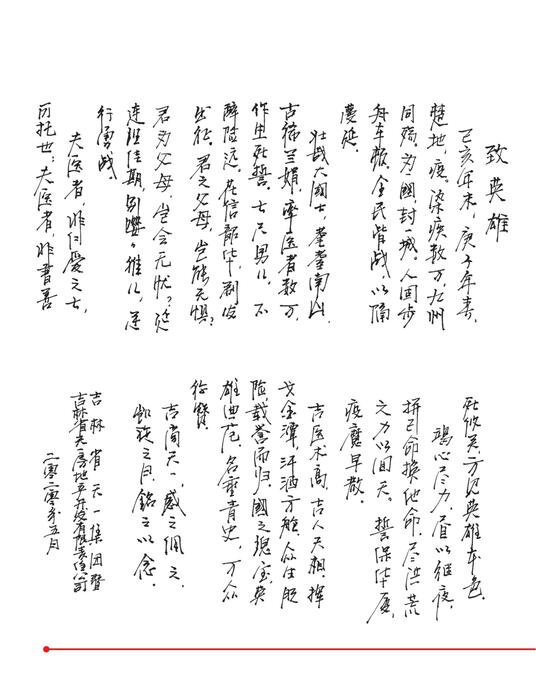 致英雄
己亥年末，庚子年春，
楚地，疫。染疾数万，九州
同殇。为国，封一城。人固步
舟车辍，全民皆战，以隔
蔓延。
壮哉大国士，南山，
古稀兰娟，率医者数万，
作生死誓。七尺男儿，不
辞险远，韶华，削发
出征。君之父母，岂能无惧？
君为父母，岂会无忧？延
连理佳期，别嗷嗷稚儿，逆
行勇战
夫医者，非仁爱之士，
可托也；夫医者，非善
方见英雄本色。
竭心尽力，以继夜，
拼己命换他命，尽洪荒
之力以回天。誓保华厦，
疫魔早散。
吉医术高，吉人天相，挥
戈金潭，汗洒方舱，众仕脱
险，载誉而归。国之瑰宝，英
雄典范，名垂青史，万众
赞。
吉尚天一，感之佩之，
之月，铭之以念。
吉林省天一集团暨
吉林省天房地产开发有限责任公司
二零二零年五月